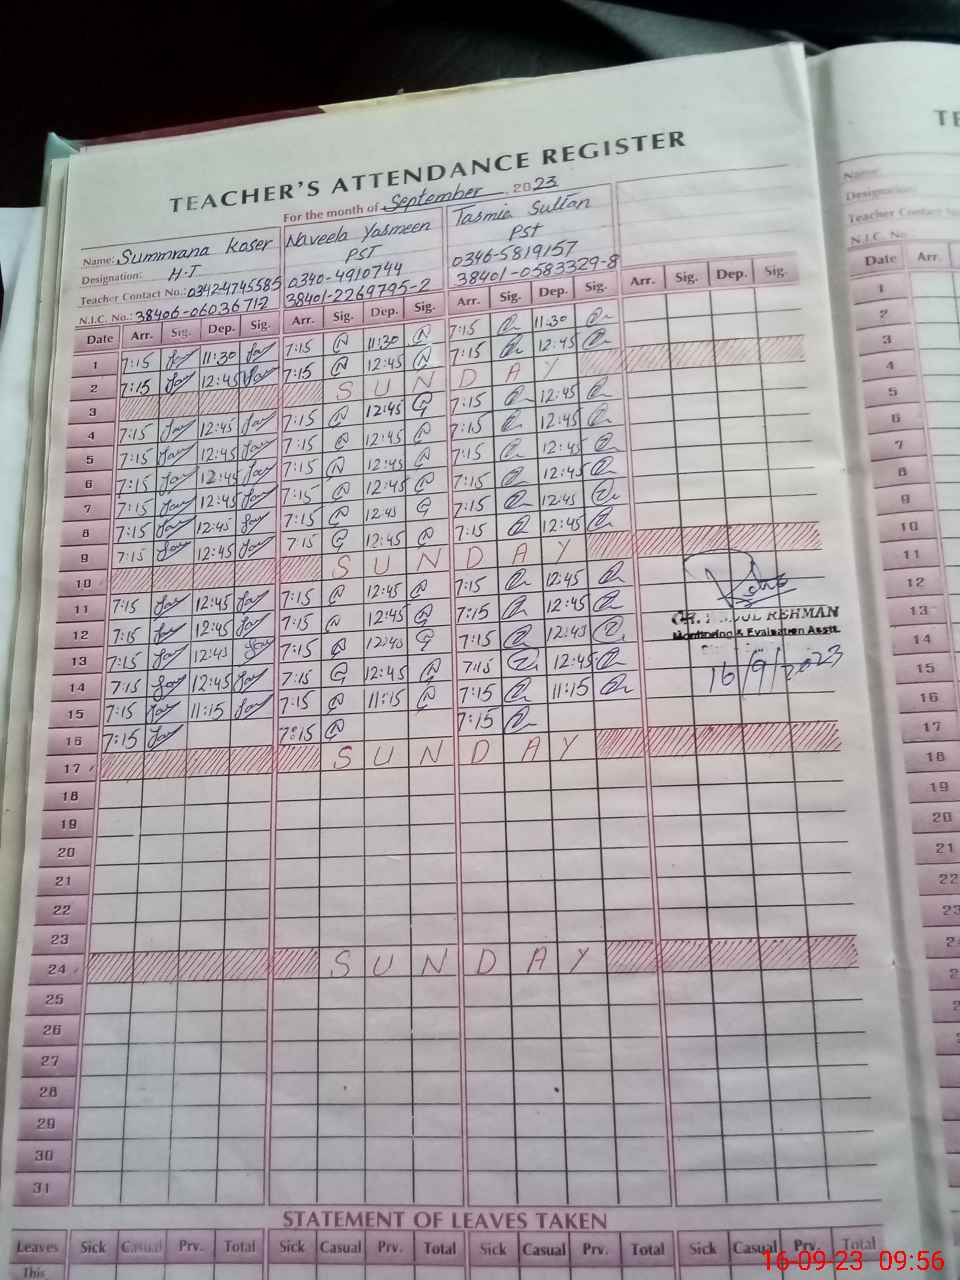 TEACHER'S ATTENDANCE REGISTER
For the month of September 2023
Name: Summrana Koser Naveela Yasmeen Tasmia Sultan
Designation: H.T PST PST
Teacher Contact No.: 03424745585 0340-4910744 0346-5819157
N.I.C. No.: 38406-0603671-2 38401-2269795-2 38401-0583329-8
Date Arr. Sig. Dep. Sig. Arr. Sig. Dep. Sig. Arr. Sig. Dep. Sig. Arr. Sig. Dep. Sig.
1 7:15 11:30 7:15 11:30 7:15 11:30
2 7:15 12:45 7:15 12:45 7:15 12:45
3 SUNDAY
4 7:15 12:45 7:15 12:45 7:15 12:45
5 7:15 12:45 7:15 12:45 7:15 12:45
6 7:15 12:45 7:15 12:45 7:15 12:45
7 7:15 12:45 7:15 12:45 7:15 12:45
8 7:15 12:45 7:15 12:45 7:15 12:45
9 7:15 12:45 7:15 12:45 7:15 12:45
10 SUNDAY
11 7:15 12:45 7:15 12:45 7:15 12:45
12 7:15 12:45 7:15 12:45 7:15 12:45
13 7:15 12:45 7:15 12:45 7:15 12:45
14 7:15 12:45 7:15 12:45 7:15 12:45
15 7:15 11:15 7:15 11:15 7:15 11:15
16 7:15 7:15 7:15
17 SUNDAY
18
19
20
21
22
23
24 SUNDAY
25
26
27
28
29
30
31
REHMAN
Monitoring & Evaluation Asstt.
16/9/2023
STATEMENT OF LEAVES TAKEN
Leaves Sick Casual Prv. Total Sick Casual Prv. Total Sick Casual Prv. Total Sick Casual Prv. Total
This
TE
Name:
Designation:
Teacher Contact No
N.I.C. No.
Date Arr.
1
2
3
4
5
6
7
8
9
10
11
12
13
14
15
16
17
18
19
20
21
22
23
16-09-23 09:56